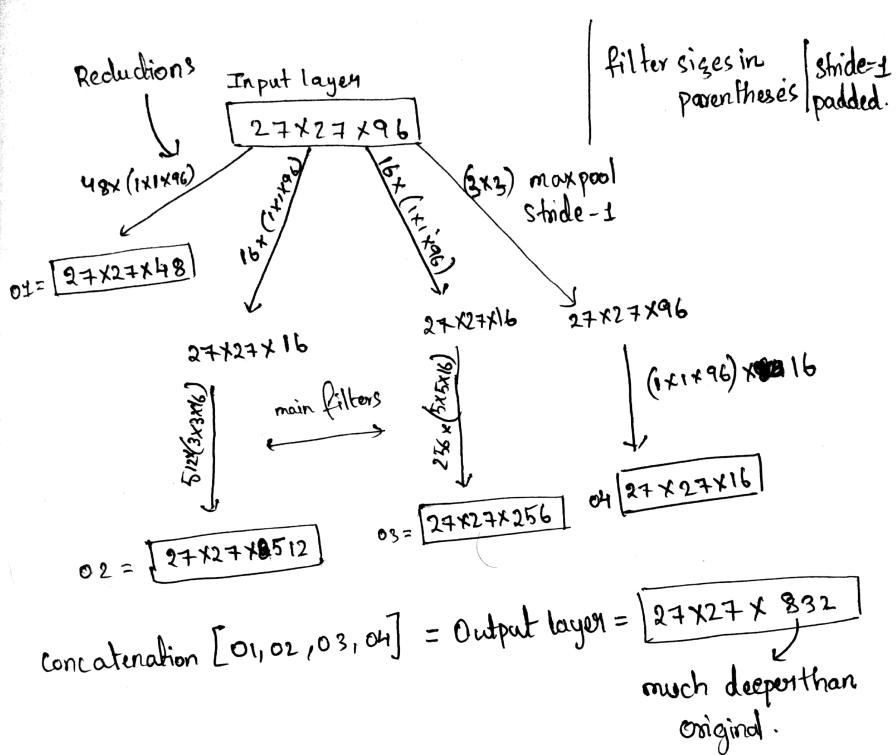 Reductions
Input layer
27x27x96
filter sizes in
parentheses
stride-1
padded.
48x (1x1x96)
16x (1x1x96)
16x (1x1x96)
(3x3) maxpool
stride-1
01 = 27x27x48
27x27x16
27x27x16
27x27x96
512x(3x3x16)
main filters
256x(5x5x16)
(1x1x96) x 16
02 = 27x27x512
03 = 27x27x256
04 27x27x16
Concatenation [01, 02, 03, 04] = Output layer = 27x27x 832
much deeper than
original.